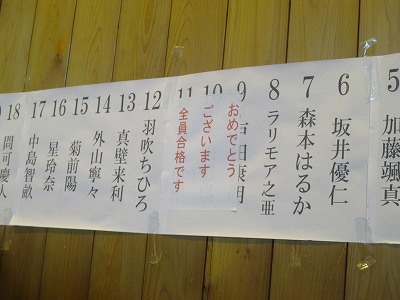 5 加藤颯真
6 坂井優仁
7 森本はるか
8 ラリモア之亜
9 康明
10
11
おめでとう
ございます
全員合格です
12 羽吹ちひろ
13 真壁来利
14 外山寧々
15 菊前陽
16 星玲奈
17 中島智畝
18 間可慶人